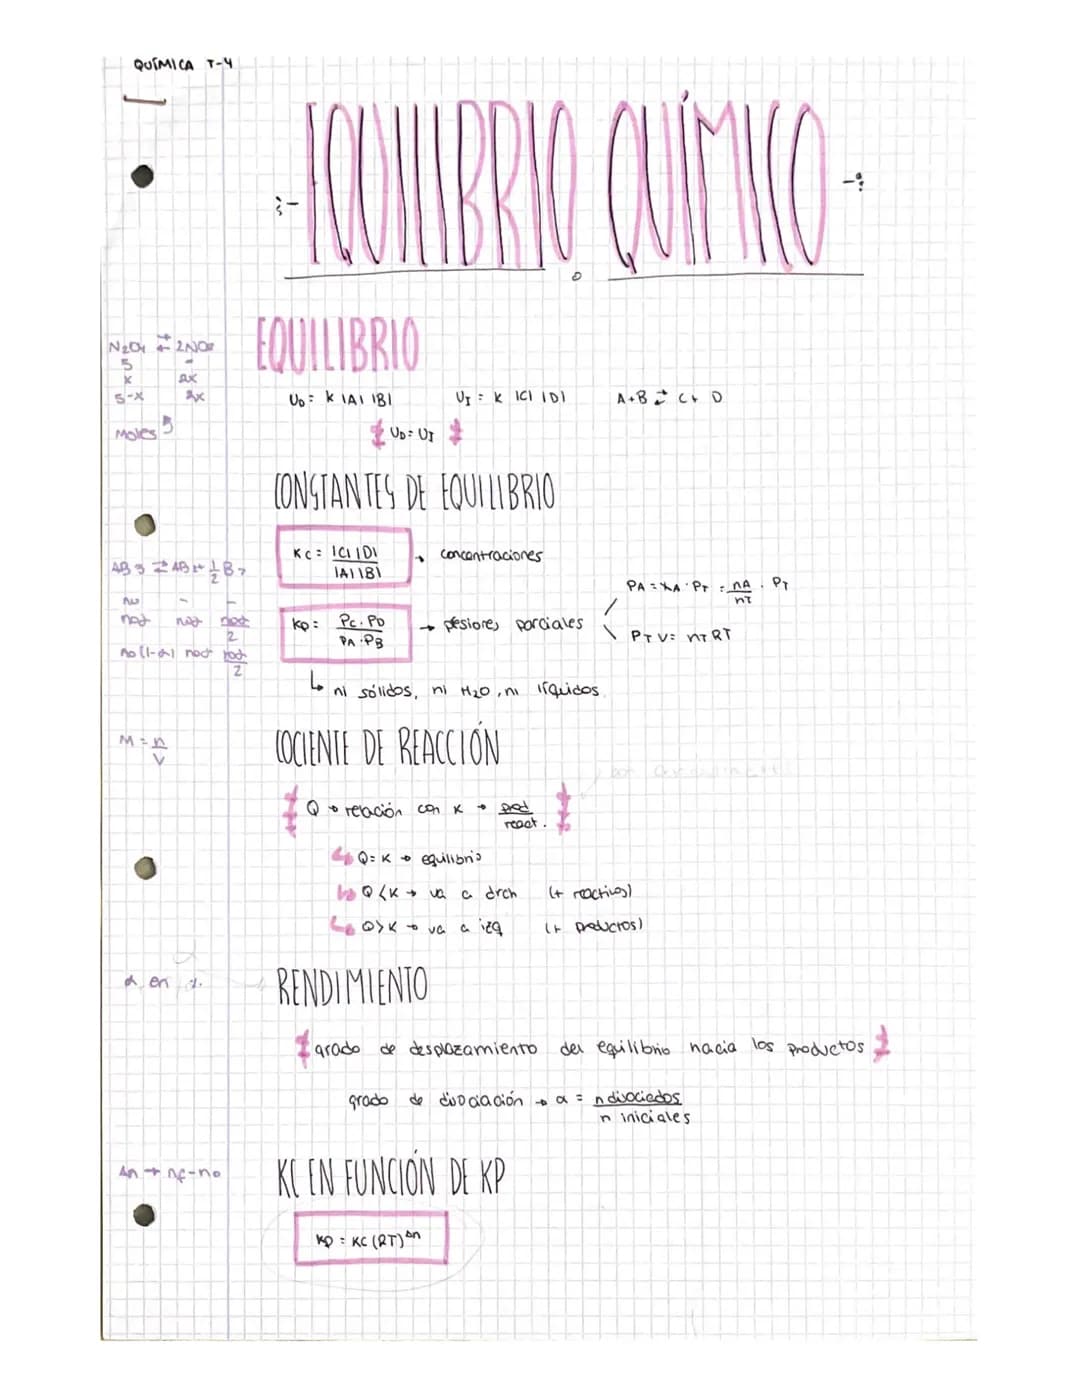 QUÍMICA T-4
EQUILIBRIO QUÍMICO
EQUILIBRIO
N2O4 ⇄ 2NO2
5 -
x 2x
5-x 2x
Moles
UD = K |A| |B| UI = K |C| |D| A+B ⇄ C+ D
UD = UI
CONSTANTES DE EQUILIBRIO
KC = |C| |D| / |A| |B| → concentraciones
AB3 ⇄ AB2 + 1/2 B2
no - -
noα noα noα/2
no(1-α) noα noα/2
PA = XA · PT = nA/nT · PT
KP = PC · PD / PA · PB → presiones parciales
PT V = nT RT
↳ ni sólidos, ni H2O, ni líquidos
M = n/V
COCIENTE DE REACCIÓN
Q → relación con K → prod / react.
↳ Q = K → equilibrio
↳ Q < K → va a drch (+ reactivos)
↳ Q > K → va a izq (+ productos)
α en %
RENDIMIENTO
grado de desplazamiento del equilibrio hacia los productos
grado de disociación → α = n disociados / n iniciales
Δn → nf - no
KC EN FUNCIÓN DE KP
KP = KC (RT)^Δn